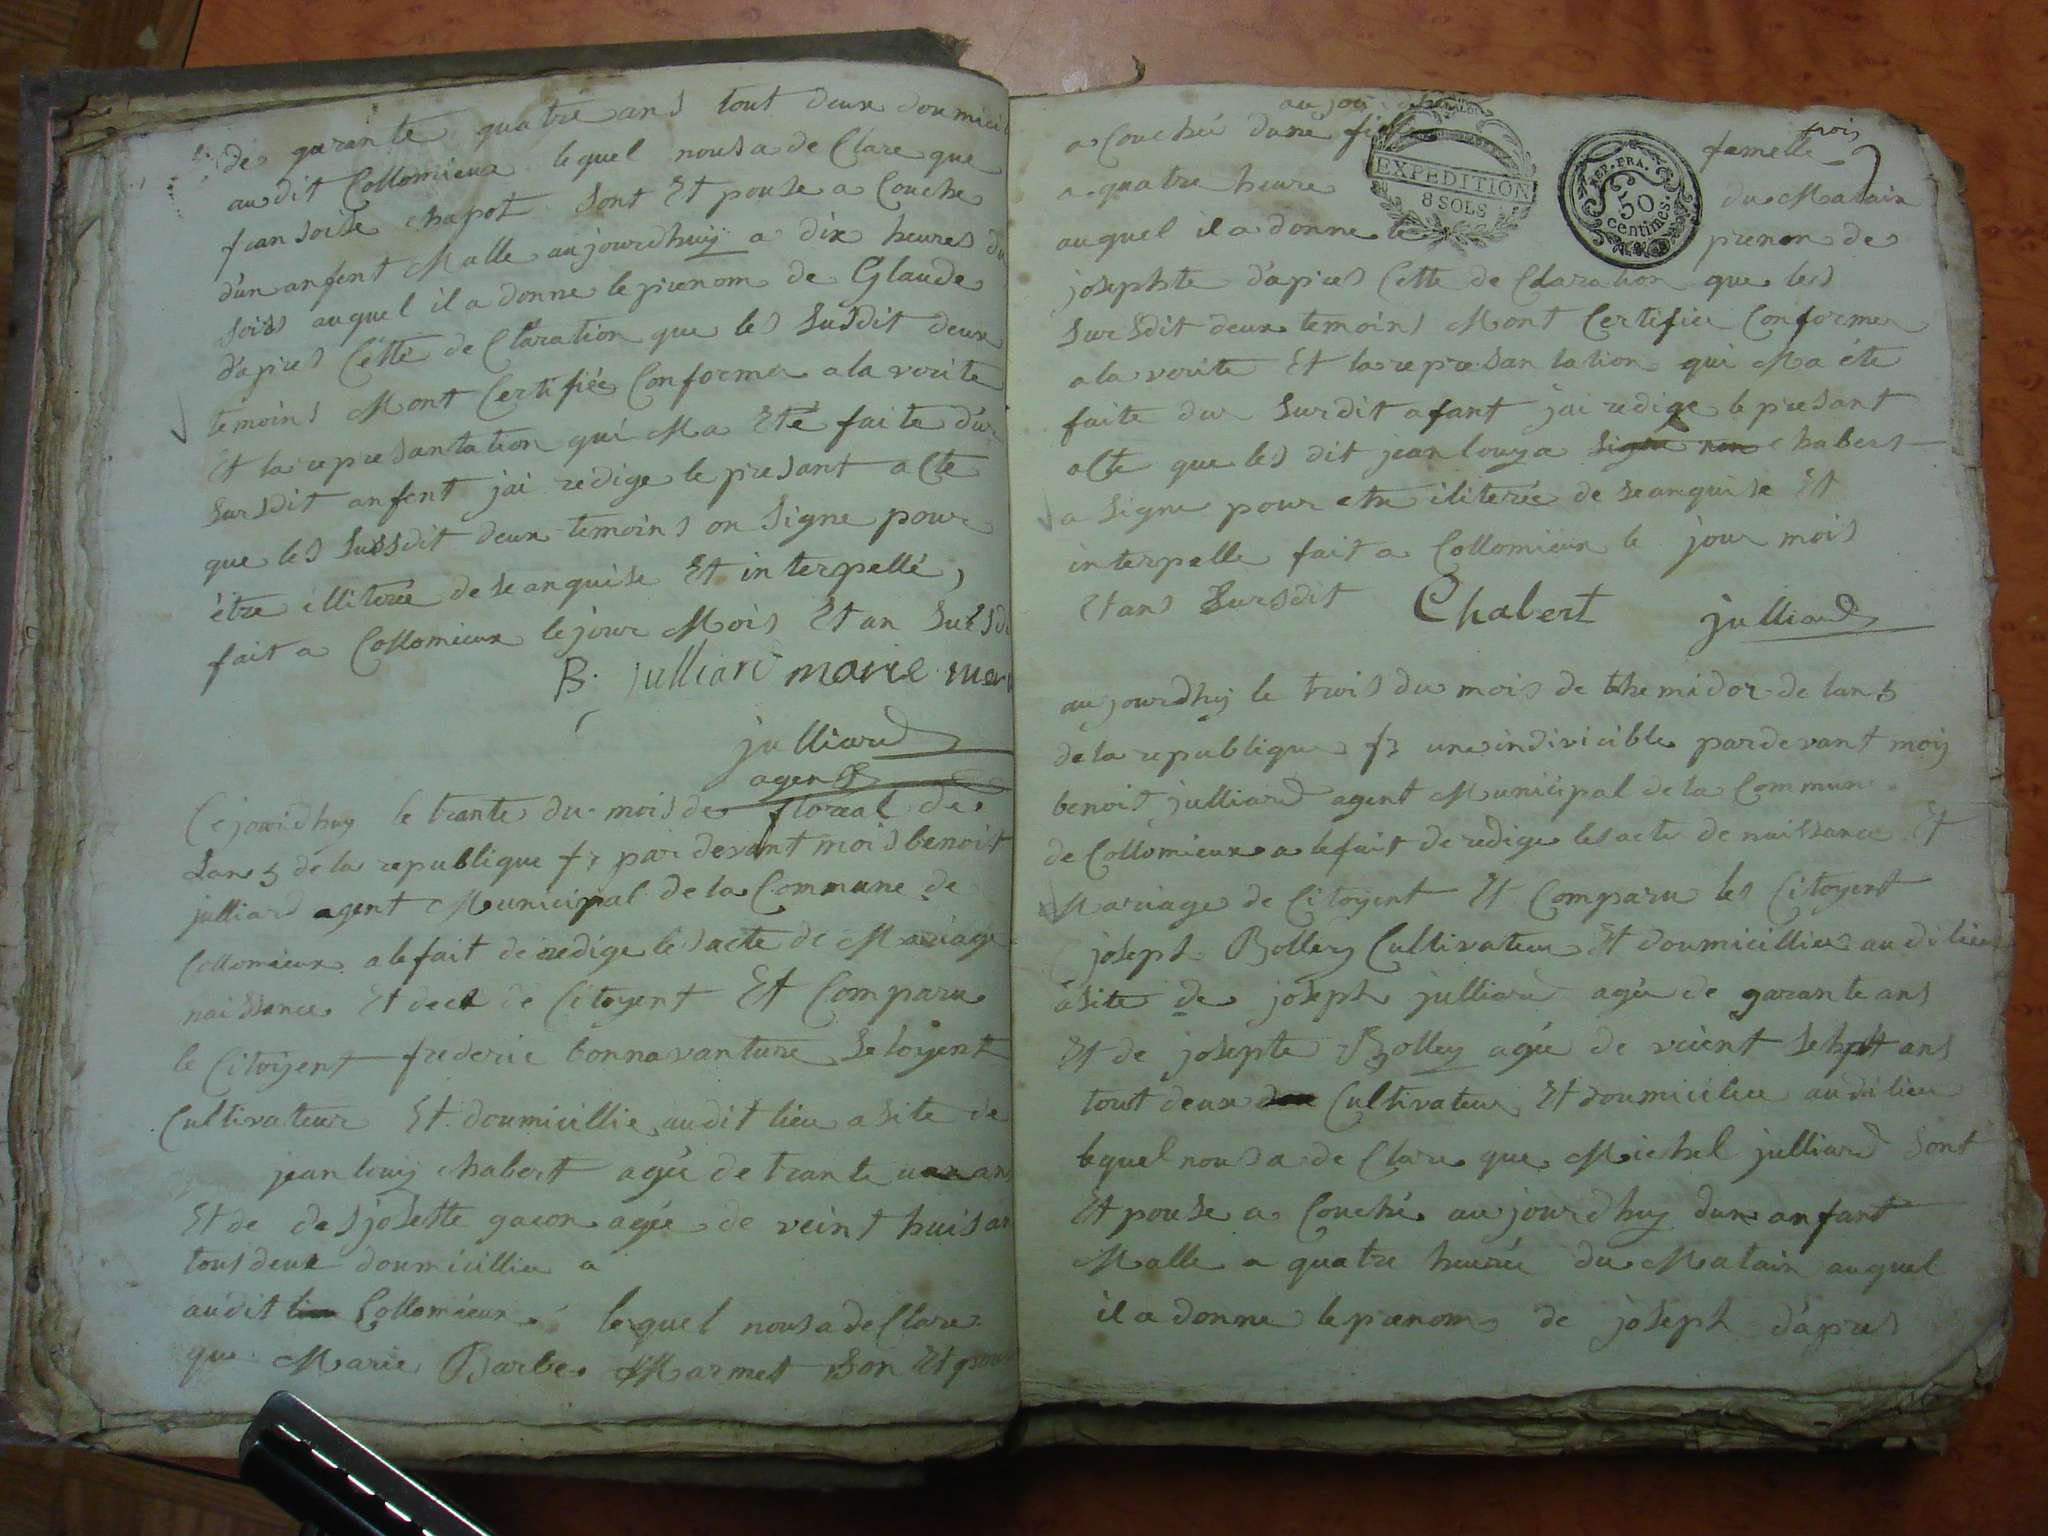 de quarante quatre ans tout deux doumicil
audit Collomieux lequel nous a de Clare que
fransoise chapot sont Et pouse a Couche
d'un anfent Malle aujourdhuiy a dix heures du
soirs auquel il a donne le prenom de Glaude
d'apres Cette de Claration que les susdit deux
temoins Mont Certifiée Conformer a la verite
Et la represantation qui Ma Eté faite d'ur
sursdit anfent jai redige le presant acte
que les sussdit deux temoins on signe pour
être illiterée de seanquise Et interpellé,
fait a Collomieux le jour Mois Et an susd
B. julliard marie
julliard
agent
Cejourdhuy le trante du mois de floreal de
Lan 5 de la republique fr par devant mois benoit
julliard agent Municipal de la Commune de
Collomieux a le fait de redige les acte de Mariage
naissance Et deces de Citoyent Et Comparu
le Citoyent frederic bonnavanture
Cultivateur Et doumicillie audit lieu a site de
jean louis chabert agée de trante an
Et de des joseste gacon agée de veint huis an
tous deux doumicillie a
audit lieu Collomieux lequel nous a de Clare
que Marie Barbe Marmet son Et pou
au jour
trois
a Couchée dune femelle
a quatre heure du Matain
EXPEDITION
8 SOLS
REP. FRA.
50
centimes.
auquel il a donne le prenon de
josephte d'apres Cette de Claration que les
sursdit deux temoins Mont Certifier Conformer
a la verite Et la represantation qui Ma éte
faite dur surdit afant jai redige le presant
acte que les dit jean louy a signe non chabert
a signe pour etre iliterée de seanquise Et
interpelle fait a Collomieux le jour mois
Et ans sursdit Chabert julliard
aujourdhuy le trois du mois de themidor de lan 5
de la republique fr une indivicible pardevant moy
benoit julliard agent Municipal de la Commune
de Collomieux a le fait de redige les acte de naissance Et
Mariage de Citoyent Et Comparu les Citoyent
joseph Bolley Cultivateur Et doumicillie audi lieu
asite de joseph julliard agée de garante ans
Et de josepte Bolley agée de veient sehptt ans
tout deux Cultivateur Et doumicilie audi lieu
lequel nous a de Clare que Michel julliard sont
Et pouse a Couché aujourdhuy dun anfant
Malle a quatre heurée du Matain auquel
il a donne le prenom de joseph d'apres